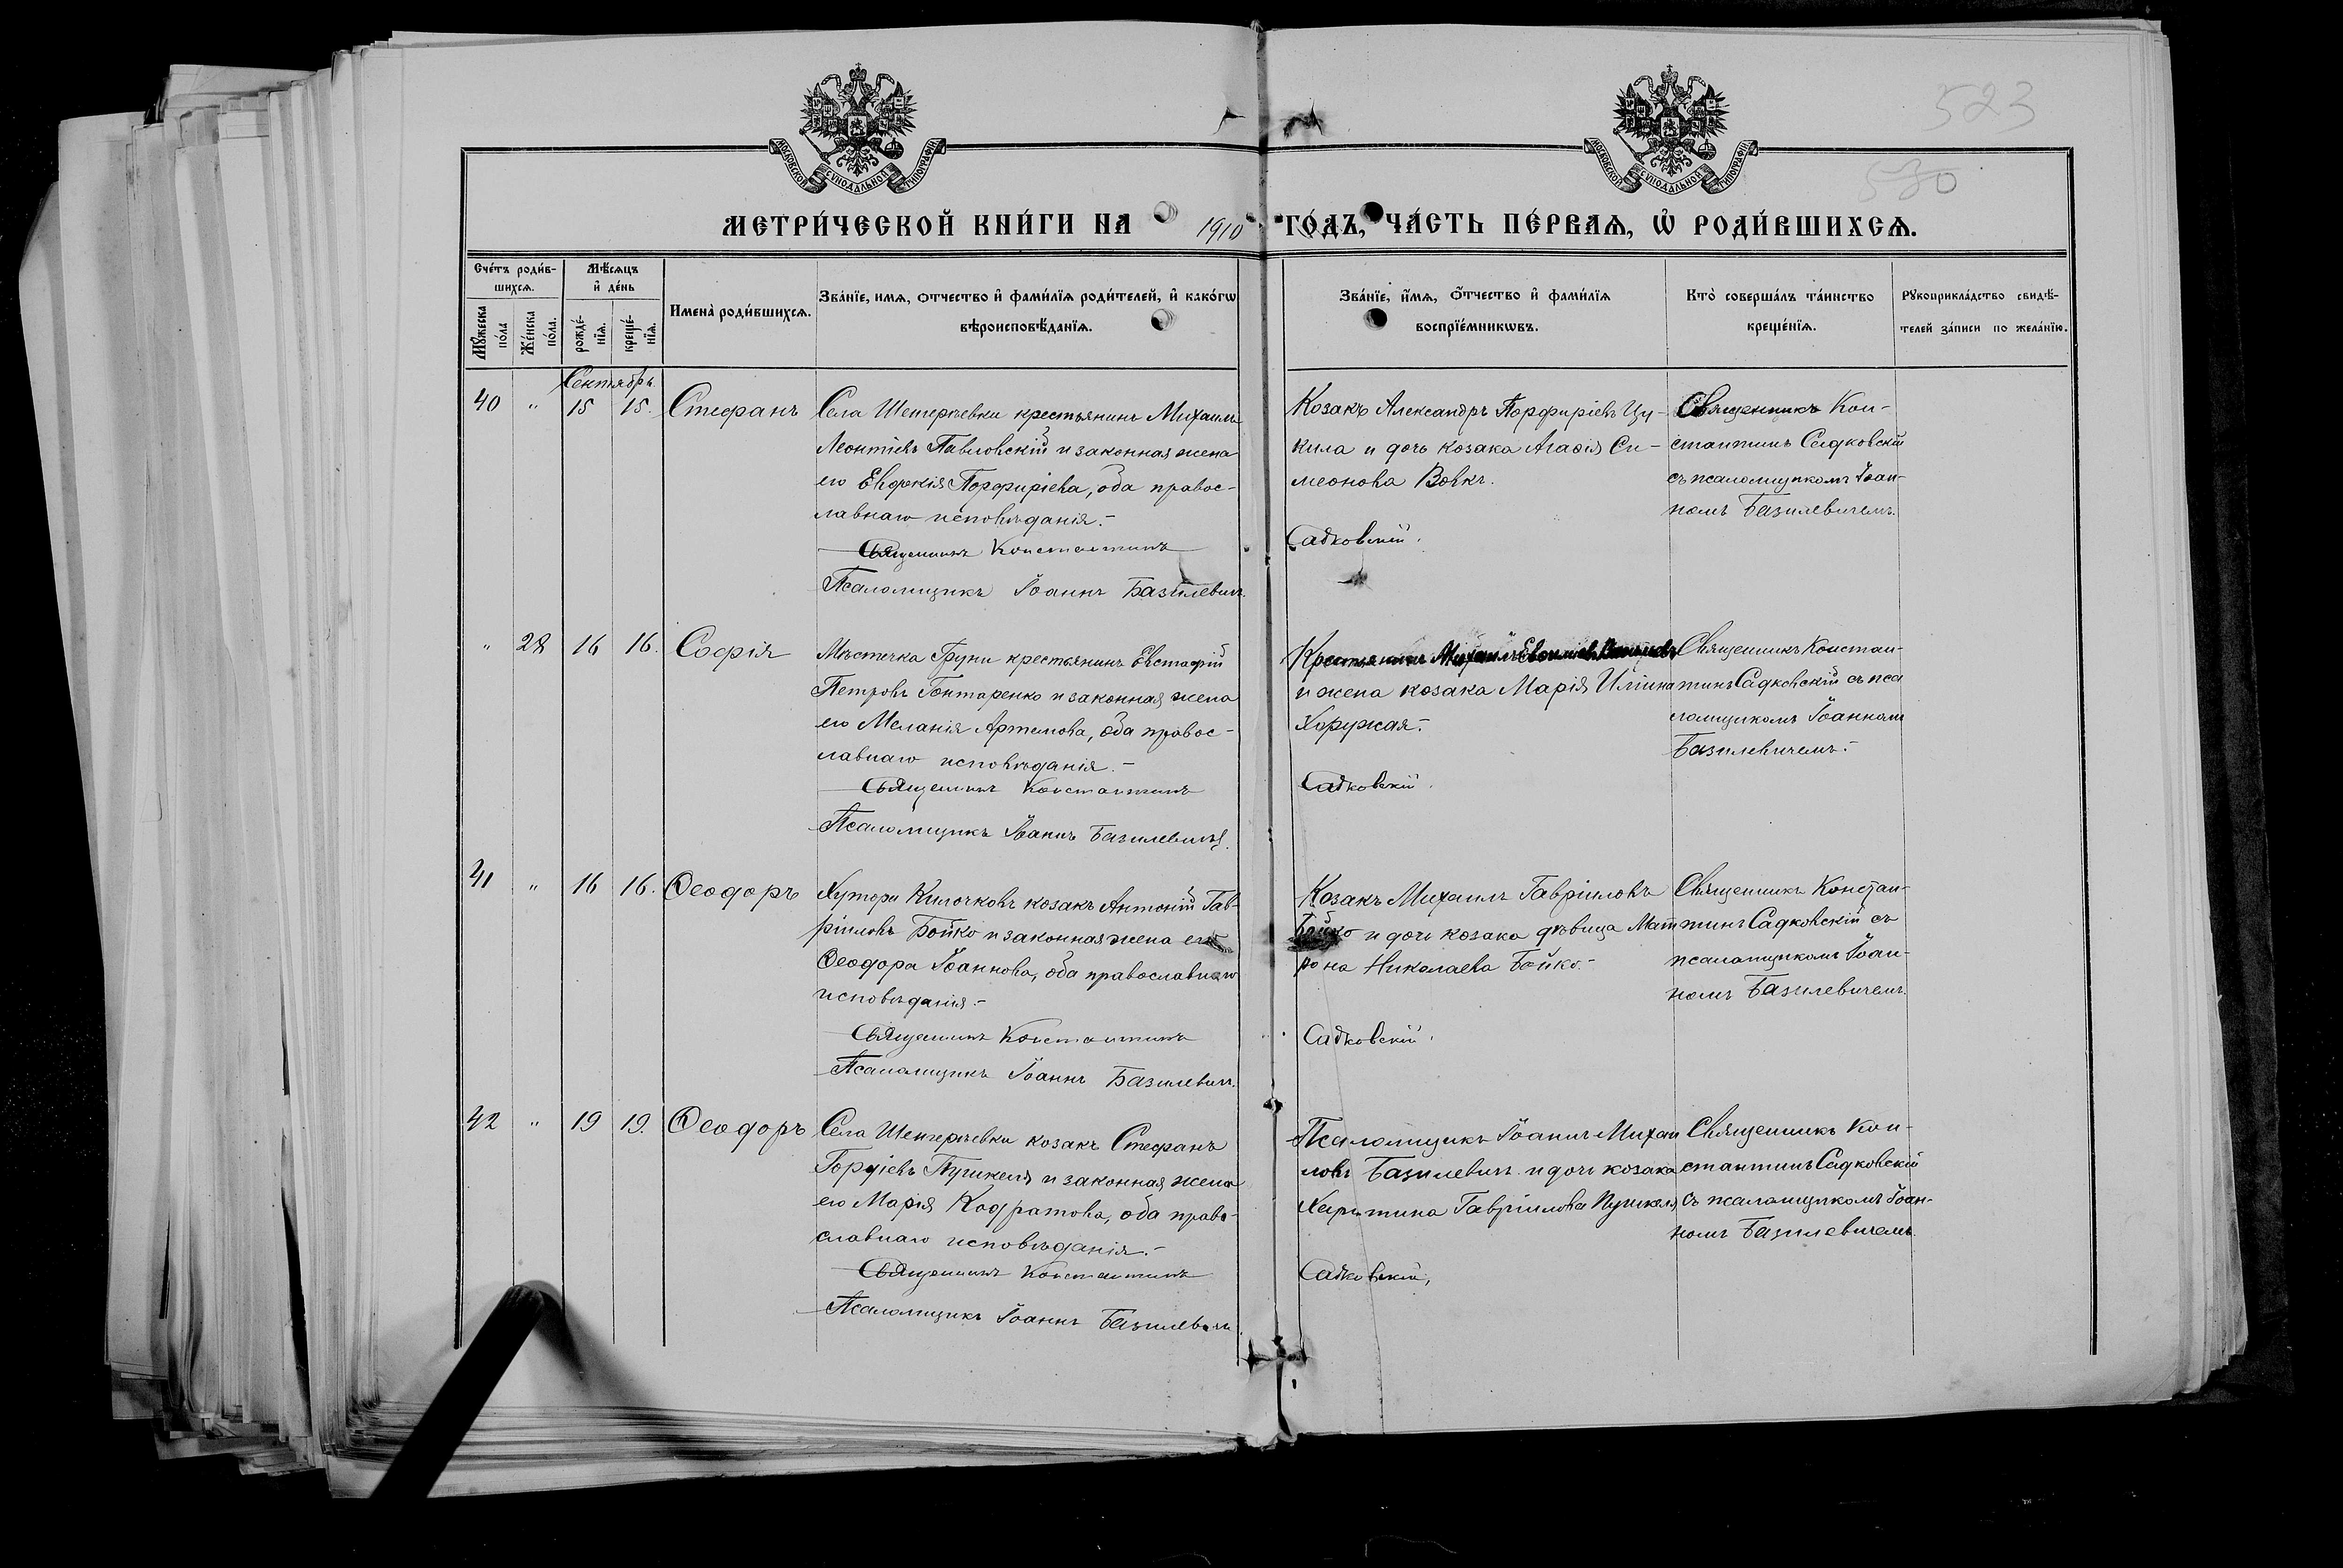 523
530
МОСКОВСКОЙ СѴНОДАЛЬНОЙ ТИПОГРАФІИ
МОСКОВСКОЙ СѴНОДАЛЬНОЙ ТИПОГРАФІИ
МЕТРИ́ЧЕСКОЙ КНИ́ГИ НА 1910 ГО́ДЪ, ЧА́СТЬ ПЕ́РВАѦ, Ѡ РОДИ́ВШИХСѦ.
Сче́тъ роди́в-
шихсѧ.
Мꙋ́жеска по́ла
Же́нска по́ла.
Мѣ́сѧцъ
и҆ де́нь
рожде́-
нїѧ.
креще́-
нїѧ.
Имена̀ роди́вшихсѧ.
Зва́нїе, имѧ, ѻтчество и҆ фами́лїѧ роди́телей, и҆ како́гѡ
вѣроисповѣ́данїѧ.
Зва́нїе, и҆́мѧ, ѻ҆́тчество и҆ фами́лїѧ
воспрїе́мникѡвъ.
Кто̀ соверша́лъ та́инство
креще́нїѧ.
Рꙋкоприкла́дство свидѣ́-
телей за́писи по жела́нїю.
Сентябрь.
40 " 15 15. Стефанъ
Села крестьянинъ Михаилъ
Леонтіевъ Павловскій и законная жена
его Евдокія Порфиріева, оба правос-
лавнаго исповѣданія.-
Священникъ Константинъ Садковскій.
Псаломщикъ Іоаннъ Базилевичъ.
Козакъ Александръ Порфиріевъ Цу-
кила и дочь козака Агафія Си-
меонова Вовкъ.
Священникъ Кон-
стантинъ Садковскій
съ псаломщикомъ Іоан-
номъ Базилевичемъ.
" 28 16 16. Софія
Мѣстечка Груни крестьянинъ Евстафій
Петровъ Гонтаренко и законная жена
его Меланія Артемова, оба правос-
лавнаго исповѣданія.-
Священникъ Константинъ Садковскій.
Псаломщикъ Іоаннъ Базилевичъ.
Крестьянинъ Михаилъ
и жена козака Марія Иліина
Хоружая.-
Священникъ Констан-
тинъ Садковскій съ пса
ломщикомъ Іоанномъ
Базилевичемъ.-
41 " 16 16. Ѳеодоръ
Хутора Килочковъ козакъ Антоній Гав-
ріиловъ Бойко и законная жена его
Ѳеодора Іоаннова, оба православнаго
исповѣданія.-
Священникъ Константинъ Садковскій.
Псаломщикъ Іоаннъ Базилевичъ.
Козакъ Михаилъ Гавріиловъ
Бойко и дочь козака дѣвица Мат
рона Николаева Бойко.-
Священникъ Констан-
тинъ Садковскій съ
псаломщикомъ Іоан-
номъ Базилевичемъ.
42 " 19 19. Ѳеодоръ
Села козакъ Стефанъ
Гордіевъ и законная жена
его Марія Кодратова, оба право-
славнаго исповѣданія.-
Священникъ Константинъ Садковскій,
Псаломщикъ Іоаннъ Базилевичъ
Псаломщикъ Іоаннъ Михаи
ловъ Базилевичъ и дочь козака
Харитина Гавріилова
Священникъ Кон-
стантинъ Садковскій
съ псаломщикомъ Іоан-
номъ Базилевичемъ.